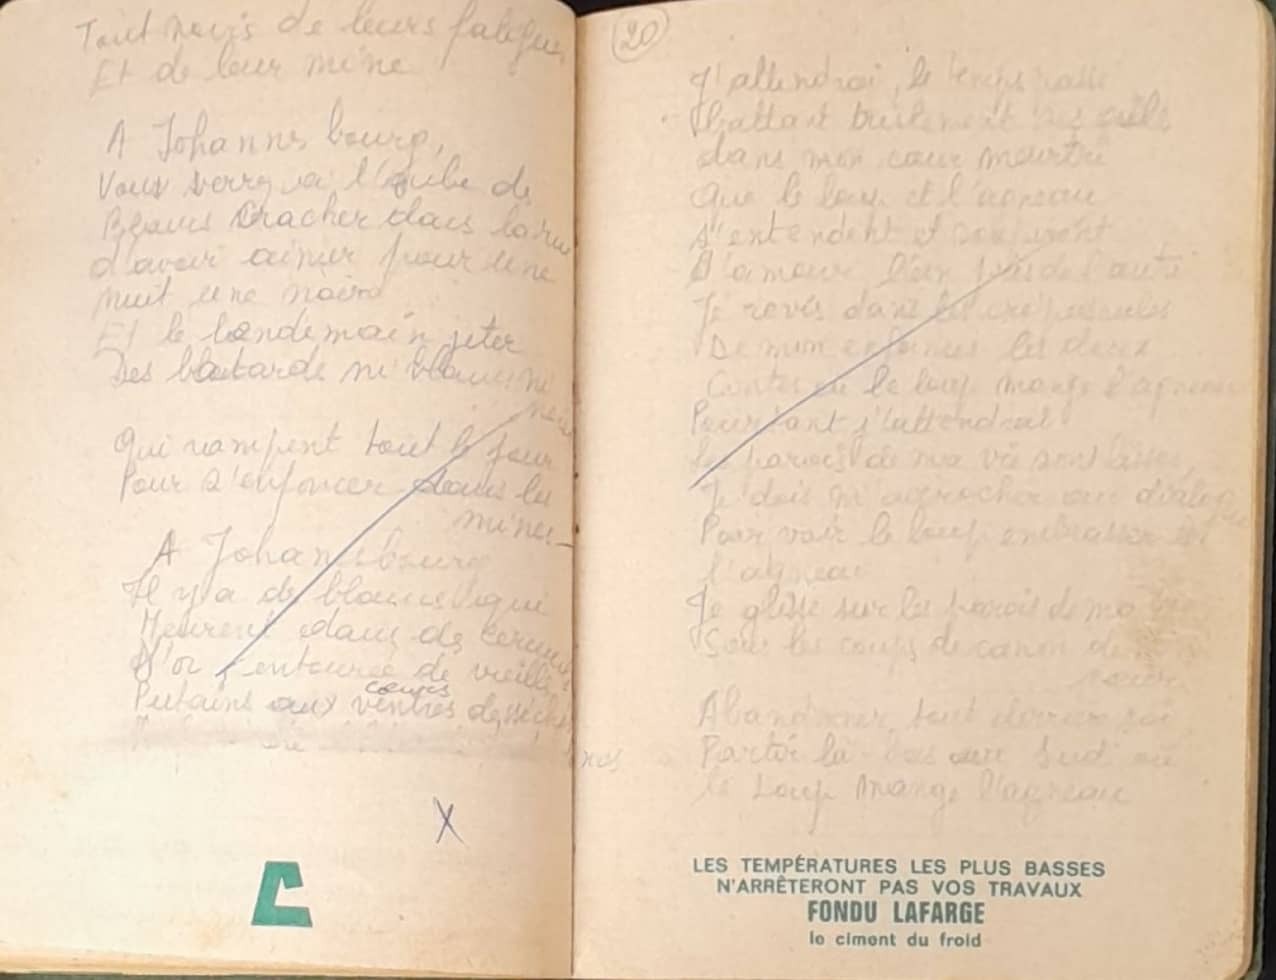 Tout noirs de leurs fatigues
Et de leur mine
A Johannesbourg,
Vous verrez à l'aube des
Blancs cracher dans la rue
d'avoir aimer pour une
nuit une noire
Et le landemain jeter
Des batards ni blancs ni
noirs
Qui rampent tout le jour
Pour s'enfoncer dans les
mines
A Johannesbourg
Il y a des blancs qui
Meurent dans des
D'or entourée de vieilles
Putains aux ventres
coeurs
X
C
20
J'attendrai, le temps
dans mon coeur meurtri
Que le loup et l'agneau
S'entendent et
D'amour l'un près de l'autre
Je revis dans les crépuscules
De mon enfances les deux
Contes où le loup mange l'agneau
Pourtant j'attendrai
les parois de ma vie sont
Je dois m'accrocher au dialogue
Pour voir le loup embrasser
l'agneau
Je glisse sur les parois de ma vie
Sous les coups de canon de
Abandonner tout derrière soi
Partir là-bas au Sud où
le Loup mange l'agneau
LES TEMPÉRATURES LES PLUS BASSES
N'ARRÊTERONT PAS VOS TRAVAUX
FONDU LAFARGE
le ciment du froid